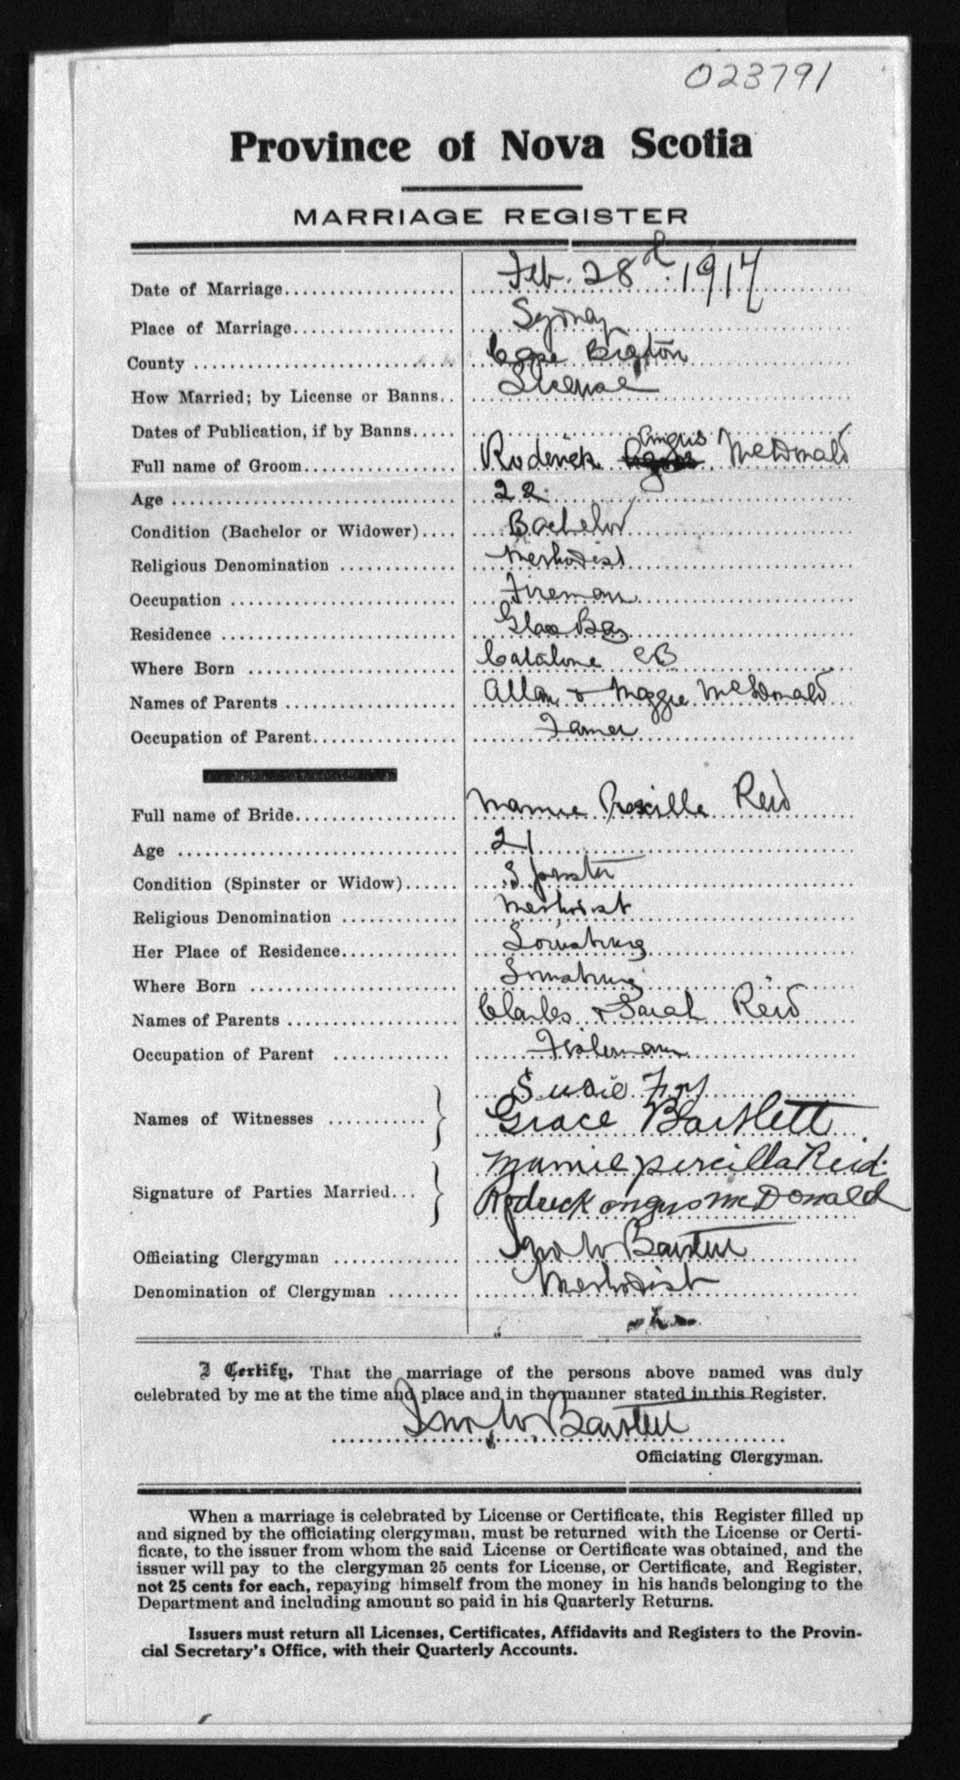 023791
Province of Nova Scotia
MARRIAGE REGISTER
Date of Marriage Feb. 28th 1917
Place of Marriage Sydney
County Cape Breton
How Married; by License or Banns License
Dates of Publication, if by Banns
Full name of Groom Roderick Angus McDonald
Age 22
Condition (Bachelor or Widower) Bachelor
Religious Denomination Methodist
Occupation Fireman
Residence Glace Bay
Where Born Catalone CB
Names of Parents Allan & Maggie McDonald
Occupation of Parent Farmer
Full name of Bride Mamie Priscilla Reid
Age 21
Condition (Spinster or Widow) Spinster
Religious Denomination Methodist
Her Place of Residence Louisburg
Where Born Louisburg
Names of Parents Charles & Sarah Reid
Occupation of Parent Fisherman
Susie
Names of Witnesses Grace Bartlett
Mamie percilla Reid
Signature of Parties Married Rodrick angus McDonald
Officiating Clergyman Jno W Bartlett
Denomination of Clergyman Methodist
I Certify, That the marriage of the persons above named was duly
celebrated by me at the time and place and in the manner stated in this Register.
Jno. W. Bartlett
Officiating Clergyman.
When a marriage is celebrated by License or Certificate, this Register filled up
and signed by the officiating clergyman, must be returned with the License or Certi-
ficate, to the issuer from whom the said License or Certificate was obtained, and the
issuer will pay to the clergyman 25 cents for License, or Certificate, and Register,
not 25 cents for each, repaying himself from the money in his hands belonging to the
Department and including amount so paid in his Quarterly Returns.
Issuers must return all Licenses, Certificates, Affidavits and Registers to the Provin-
cial Secretary's Office, with their Quarterly Accounts.